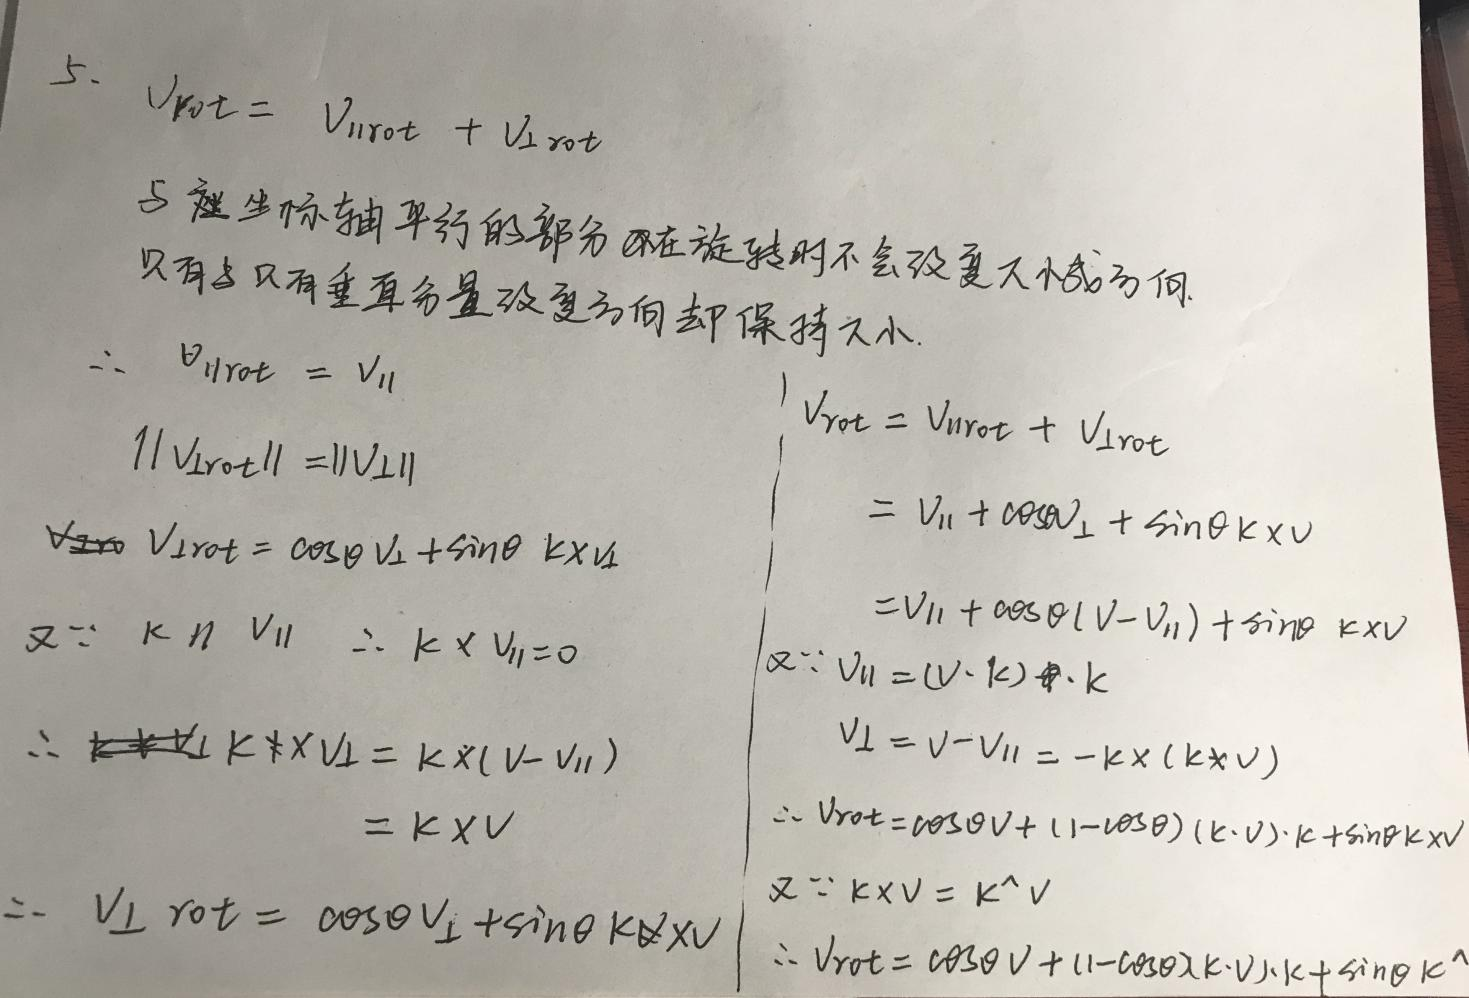 5.
Vrot = V∥rot + V⊥rot
与坐标轴平行的部分在旋转时不会改变大小或方向.
只有与只有垂直分量改变方向却保持大小.
∴ V∥rot = V∥
||V⊥rot|| = ||V⊥||
V⊥rot = cosθ V⊥ + sinθ K×V⊥
又∵ K ∥ V∥ ∴ K × V∥ = 0
∴ K × V⊥ = K×(V-V∥)
= K×V
∴ V⊥rot = cosθ V⊥ + sinθ K×V
Vrot = V∥rot + V⊥rot
= V∥ + cosθV⊥ + sinθ K×V
= V∥ + cosθ(V-V∥) + sinθ K×V
又∵ V∥ = (V·K)·K
V⊥ = V-V∥ = -K×(K×V)
∴ Vrot = cosθV + (1-cosθ)(K·V)·K + sinθK×V
又∵ K×V = K^V
∴ Vrot = cosθV + (1-cosθ)(K·V)·K + sinθ K^